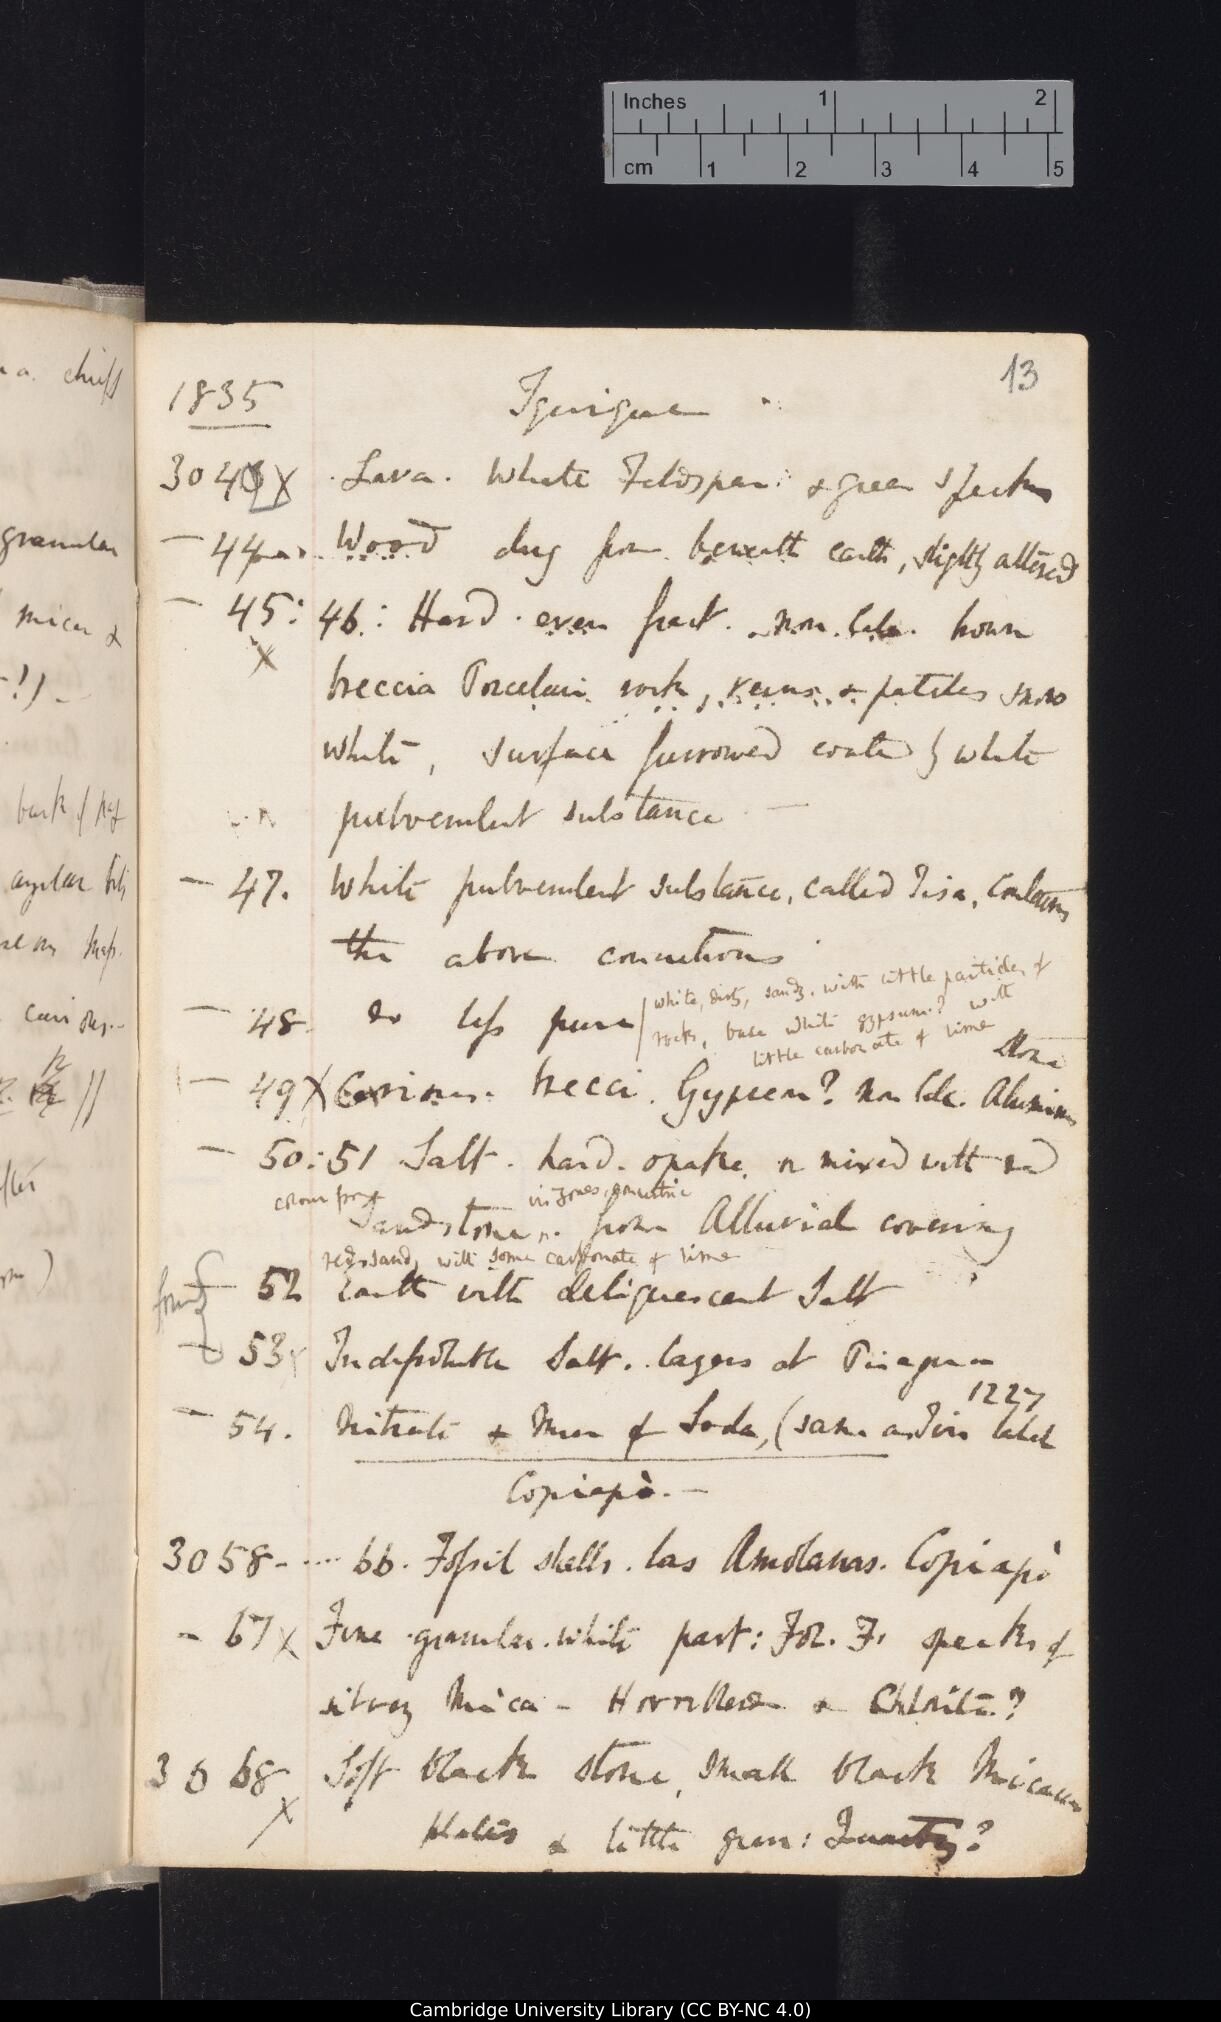 Inches 1 2
cm 1 2 3 4 5
13
1835 Iquique
3043 X Lava. White Feldspar: & green specks
— 44 Wood dug from beneath earth, slightly altered
— 45: 46: Hard. even fract. non Calc. brown
X breccia Porcelain rock, veins & patches snow
white, surface furrowed coated by white
pulverulent substance —
— 47. White pulverulent substance, called Tisa, contains
the above concretions
— 48. Do less pure white, dirty, sandy, with little particles of
rocks, base white gypsum? with
little carbonate of lime
— 49 X Curious. brecci. Gypseou? non Calc. Aluminous
Stone
— 50: 51 Salt. hard. opake, mixed with red
in zones, concentric
Sandstone. from Alluvial covering
red sand, with some carbonate of lime
— 52 Earth with deliquescent Salt
— 53 X Salt. layers at
— 54. Nitrate & Mur of Soda, (same as Tin label
1227
Copiapò. —
3058 - .... 66. Fossil shells. las Amolanas. Copiapò
- 67 X Fine granular. white part: Fol. F. specks of
silvery Mica - Hornblende & Chlorite.?
3068 Soft black stone, small black Micaceous
X plates & little gran: Quartz?
chiefs
granular
mica &
Cambridge University Library (CC BY-NC 4.0)